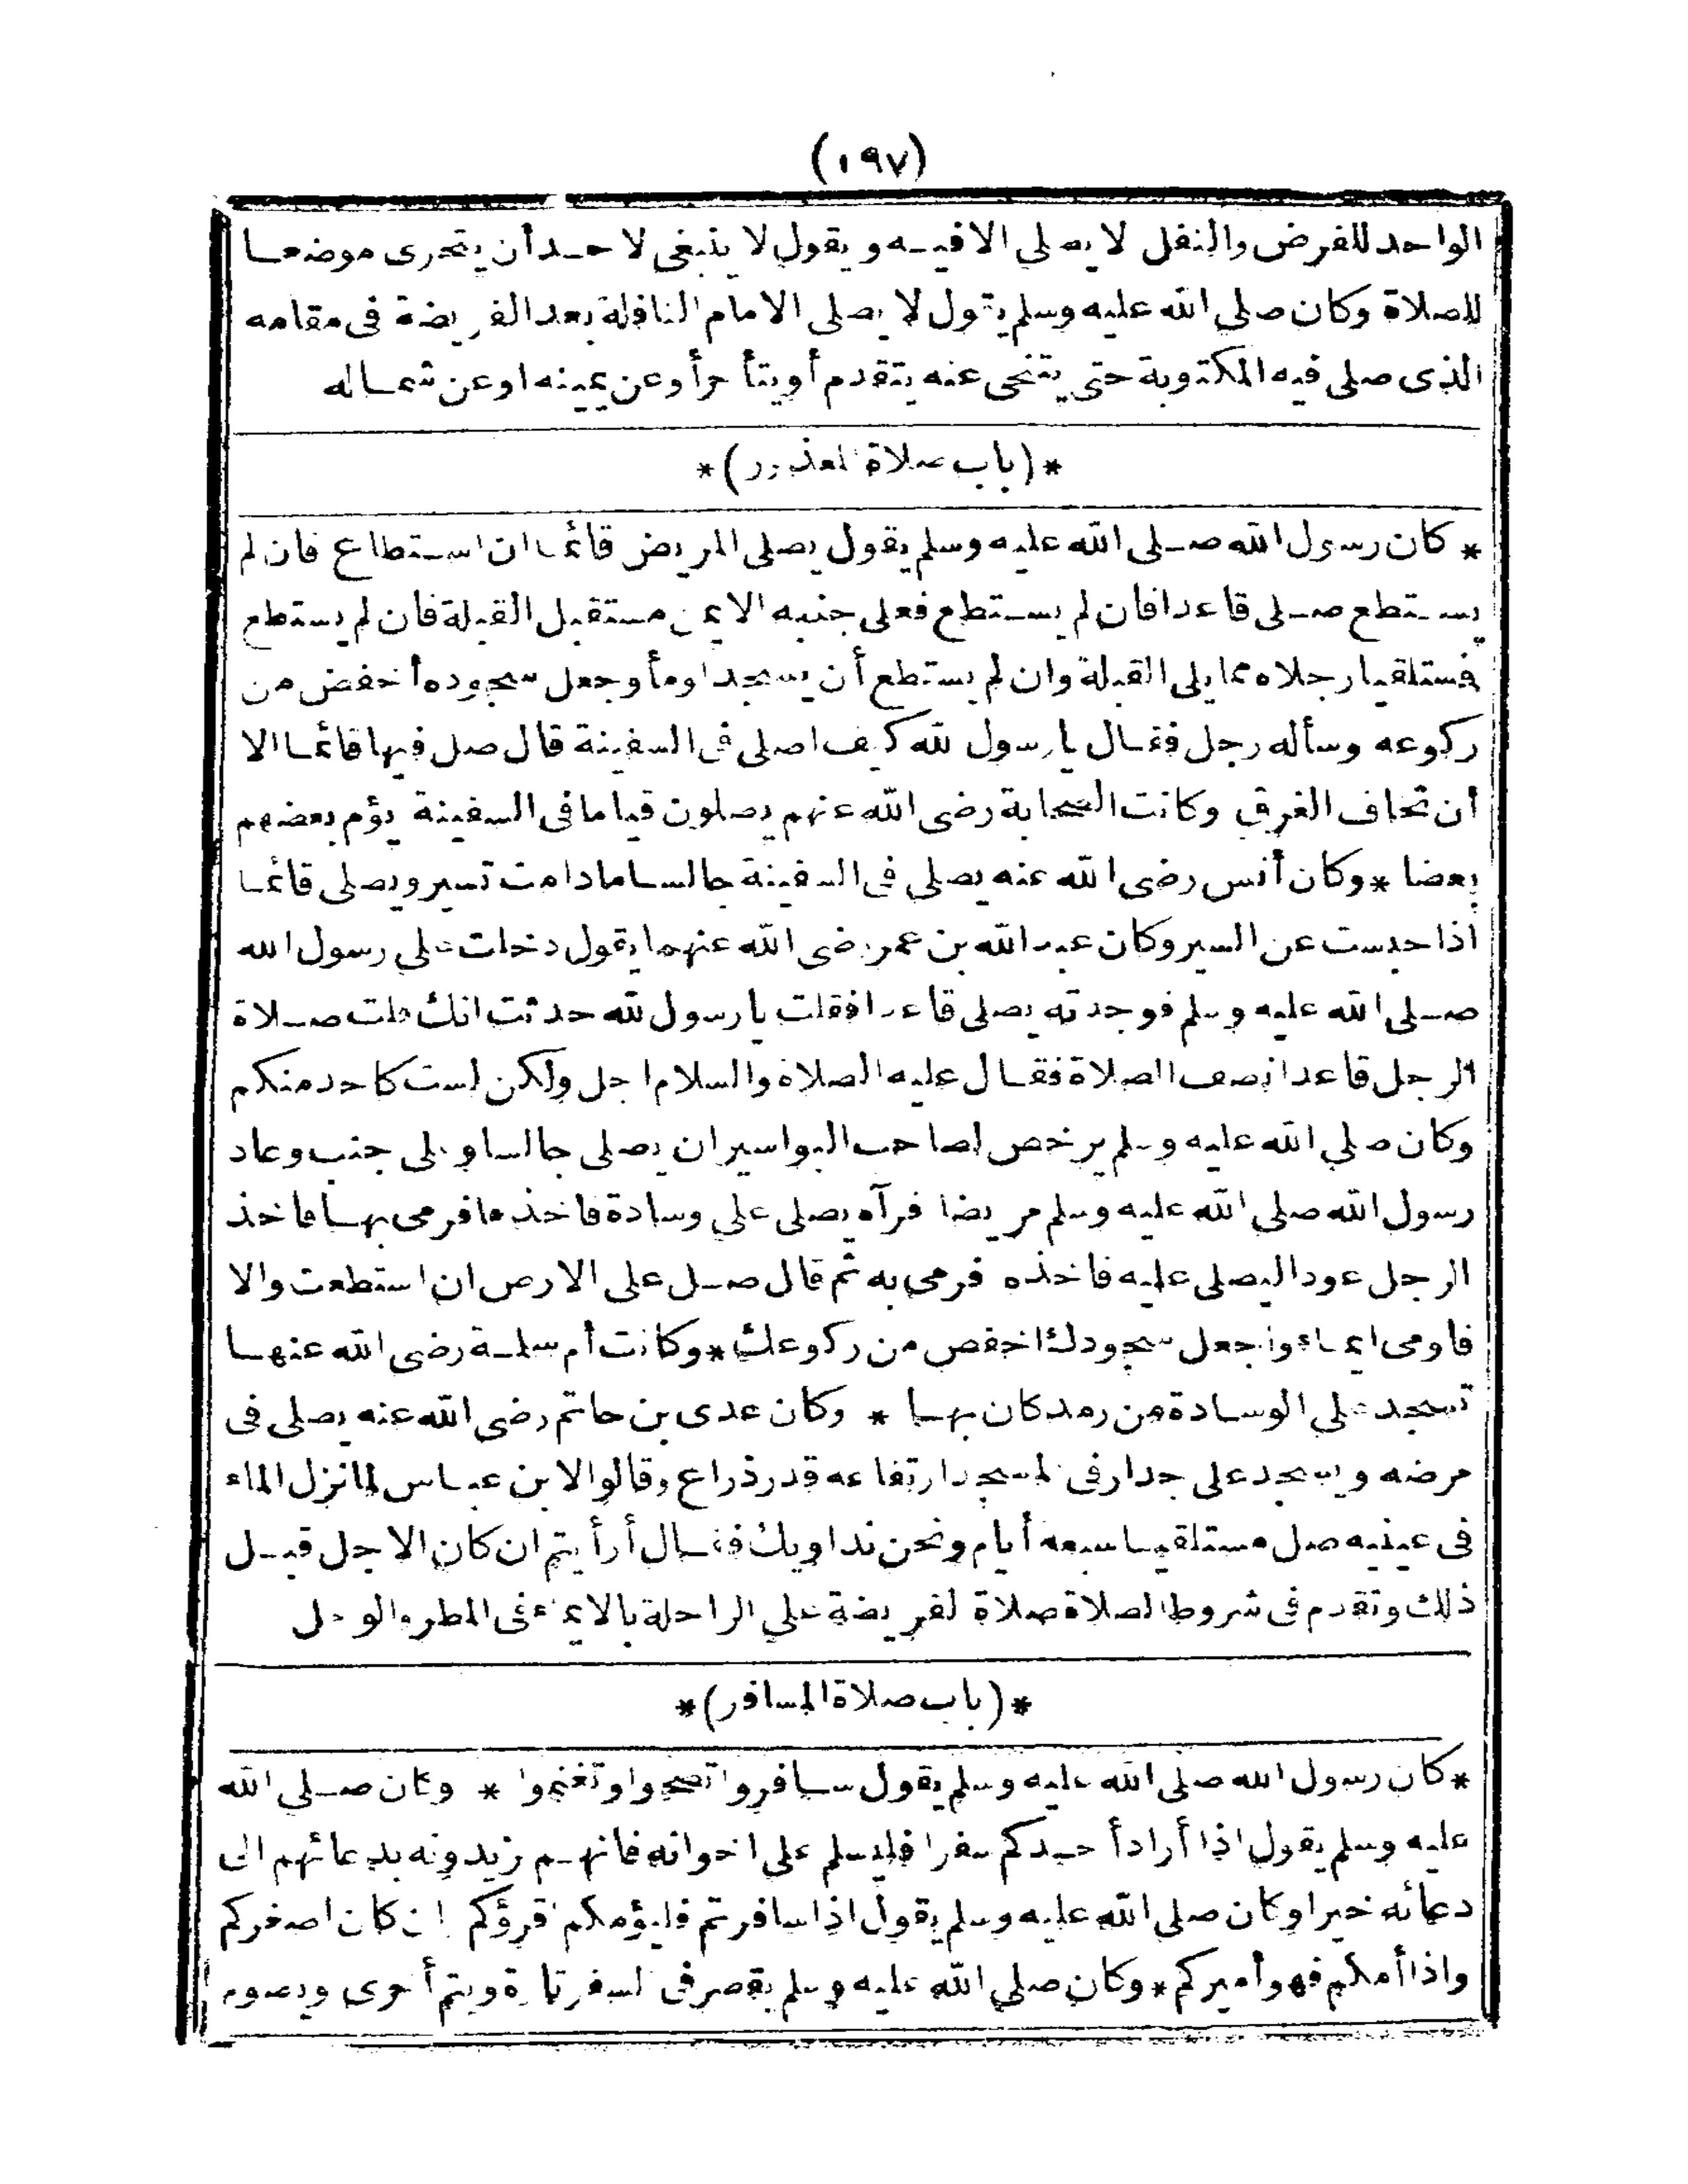 (١٩٧)
الواحد للفرض والنفل لا يصلى الا فيه ويقول لا ينبغى لاحد أن يتحرى موضعا
للصلاة وكان صلى الله عليه وسلم يقول لا يصلى الامام النافلة بعد الفريضة فى مقامه
الذى صلى فيه المكتوبة حتى يتنحى عنه يتقدم أو يتأخر أو عن يمينه او عن شماله
*(باب صلاة المعذور)*
* كان رسول الله صلى الله عليه وسلم يقول يصلى المريض قائما ان استطاع فان لم
يستطع صلى قاعدا فان لم يستطع فعلى جنبه الايمن مستقبل القبلة فان لم يستطع
فمستلقيا رجلاه مما يلى القبلة وان لم يستطع أن يسجد اومأ وجعل سجوده أخفض من
ركوعه وسأله رجل فقال يا رسول الله كيف اصلى فى السفينة قال صل فيها قائما الا
أن تخاف الغرق وكانت الصحابة رضى الله عنهم يصلون قياما فى السفينة يؤم بعضهم
بعضا * وكان أنس رضى الله عنه يصلى فى السفينة جالسا مادامت تسير ويصلى قائما
اذا حبست عن السير وكان عبد الله بن عمر رضى الله عنهما يقول دخلت على رسول الله
صلى الله عليه وسلم فوجدته يصلى قاعدا فقلت يا رسول الله حدثت انك قلت صلاة
الرجل قاعدا نصف الصلاة فقال عليه الصلاة والسلام اجل ولكن لست كاحد منكم
وكان صلى الله عليه وسلم يرخص لصاحب البواسير ان يصلى جالسا وعلى جنب وعاد
رسول الله صلى الله عليه وسلم مريضا فرآه يصلى على وسادة فاخذها فرمى بها فاخذ
الرجل عودا ليصلى عليه فاخذه فرمى به ثم قال صل على الارض ان استطعت والا
فاومى ايماء واجعل سجودك اخفض من ركوعك * وكانت أم سلمة رضى الله عنها
تسجد على الوسادة من رمد كان بها * وكان عدى بن حاتم رضى الله عنه يصلى فى
مرضه ويسجد على جدار فى المسجد ارتفاعه قدر ذراع وقالوا لابن عباس لما نزل الماء
فى عينيه صل مستلقيا سبعة أيام ونحن نداويك فقال أرأيتم ان كان الاجل قبل
ذلك وتقدم فى شروط الصلاة صلاة الفريضة على الراحلة بالايماء فى المطر والوحل
*(باب صلاة المسافر)*
* كان رسول الله صلى الله عليه وسلم يقول سافروا تصحوا وتغنموا * وكان صلى الله
عليه وسلم يقول اذا أراد أحدكم سفرا فليسلم على اخوانه فانهم يزيدونه بدعائهم الى
دعائه خيرا وكان صلى الله عليه وسلم يقول اذا سافرتم فليؤمكم اقرؤكم ان كان اصغركم
واذا أمكم فهو أميركم * وكان صلى الله عليه وسلم يقصر فى السفر تارة ويتم أخرى ويصوم